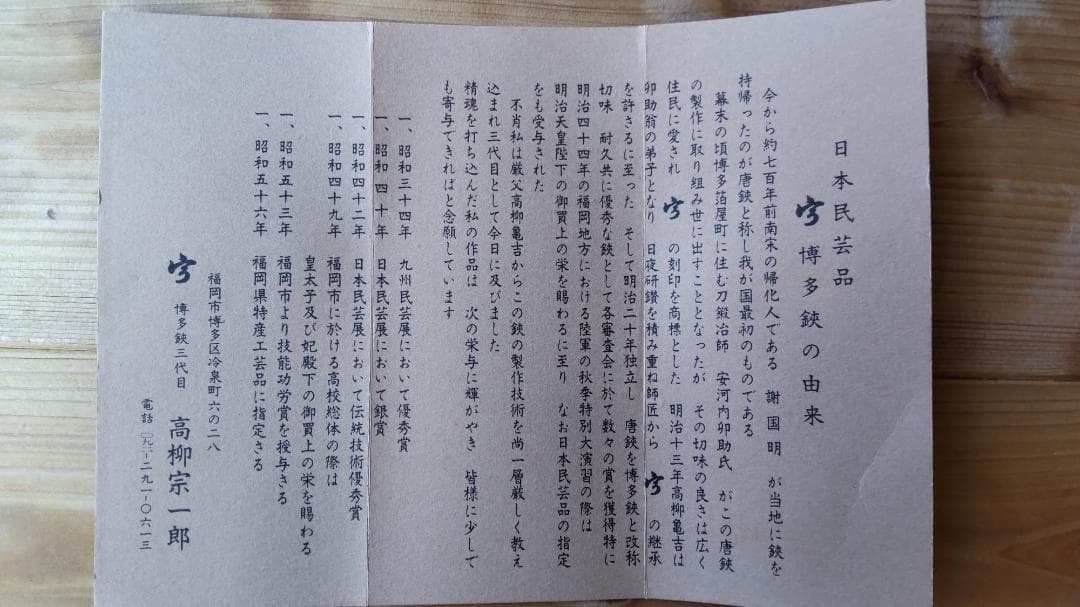 日本民芸品
博多鋏の由来
今から約七百年前南宋の帰化人である 謝国明 が当地に鋏を
持帰ったのが唐鋏と称し我が国最初のものである
幕末の頃博多箔屋町に住む刀鍛冶師 安河内卯助氏 がこの唐鋏
の製作に取り組み世に出すこととなったが その切味の良さは広く
住民に愛され の刻印を商標とした 明治十三年高柳亀吉は
卯助翁の弟子となり 日夜研鑽を積み重ね師匠から の継承
を許さるに至った そして明治二十年独立し 唐鋏を博多鋏と改称
切味 耐久共に優秀な鋏として各審査会に於て数々の賞を獲得特に
明治四十四年の福岡地方における陸軍の秋季特別大演習の際は
明治天皇陛下の御買上の栄を賜わるに至り なお日本民芸品の指定
をも受与された
不肖私は厳父高柳亀吉からこの鋏の製作技術を尚一層厳しく教え
込まれ三代目として今日に及びました
精魂を打ち込んだ私の作品は 次の栄与に輝がやき 皆様に少しで
も寄与できればと念願しています
一、昭和三十四年 九州民芸展において優秀賞
一、昭和四十年 日本民芸展において銀賞
一、昭和四十二年 日本民芸展において伝統技術優秀賞
一、昭和四十九年 福岡市に於ける高校総体の際は
皇太子及び妃殿下の御買上の栄を賜わる
一、昭和五十三年 福岡市より技能功労賞を授与さる
一、昭和五十六年 福岡県特産工芸品に指定さる
福岡市博多区冷泉町六の二八
博多鋏三代目 高柳宗一郎
電話 〇九二-二九一-〇六一三